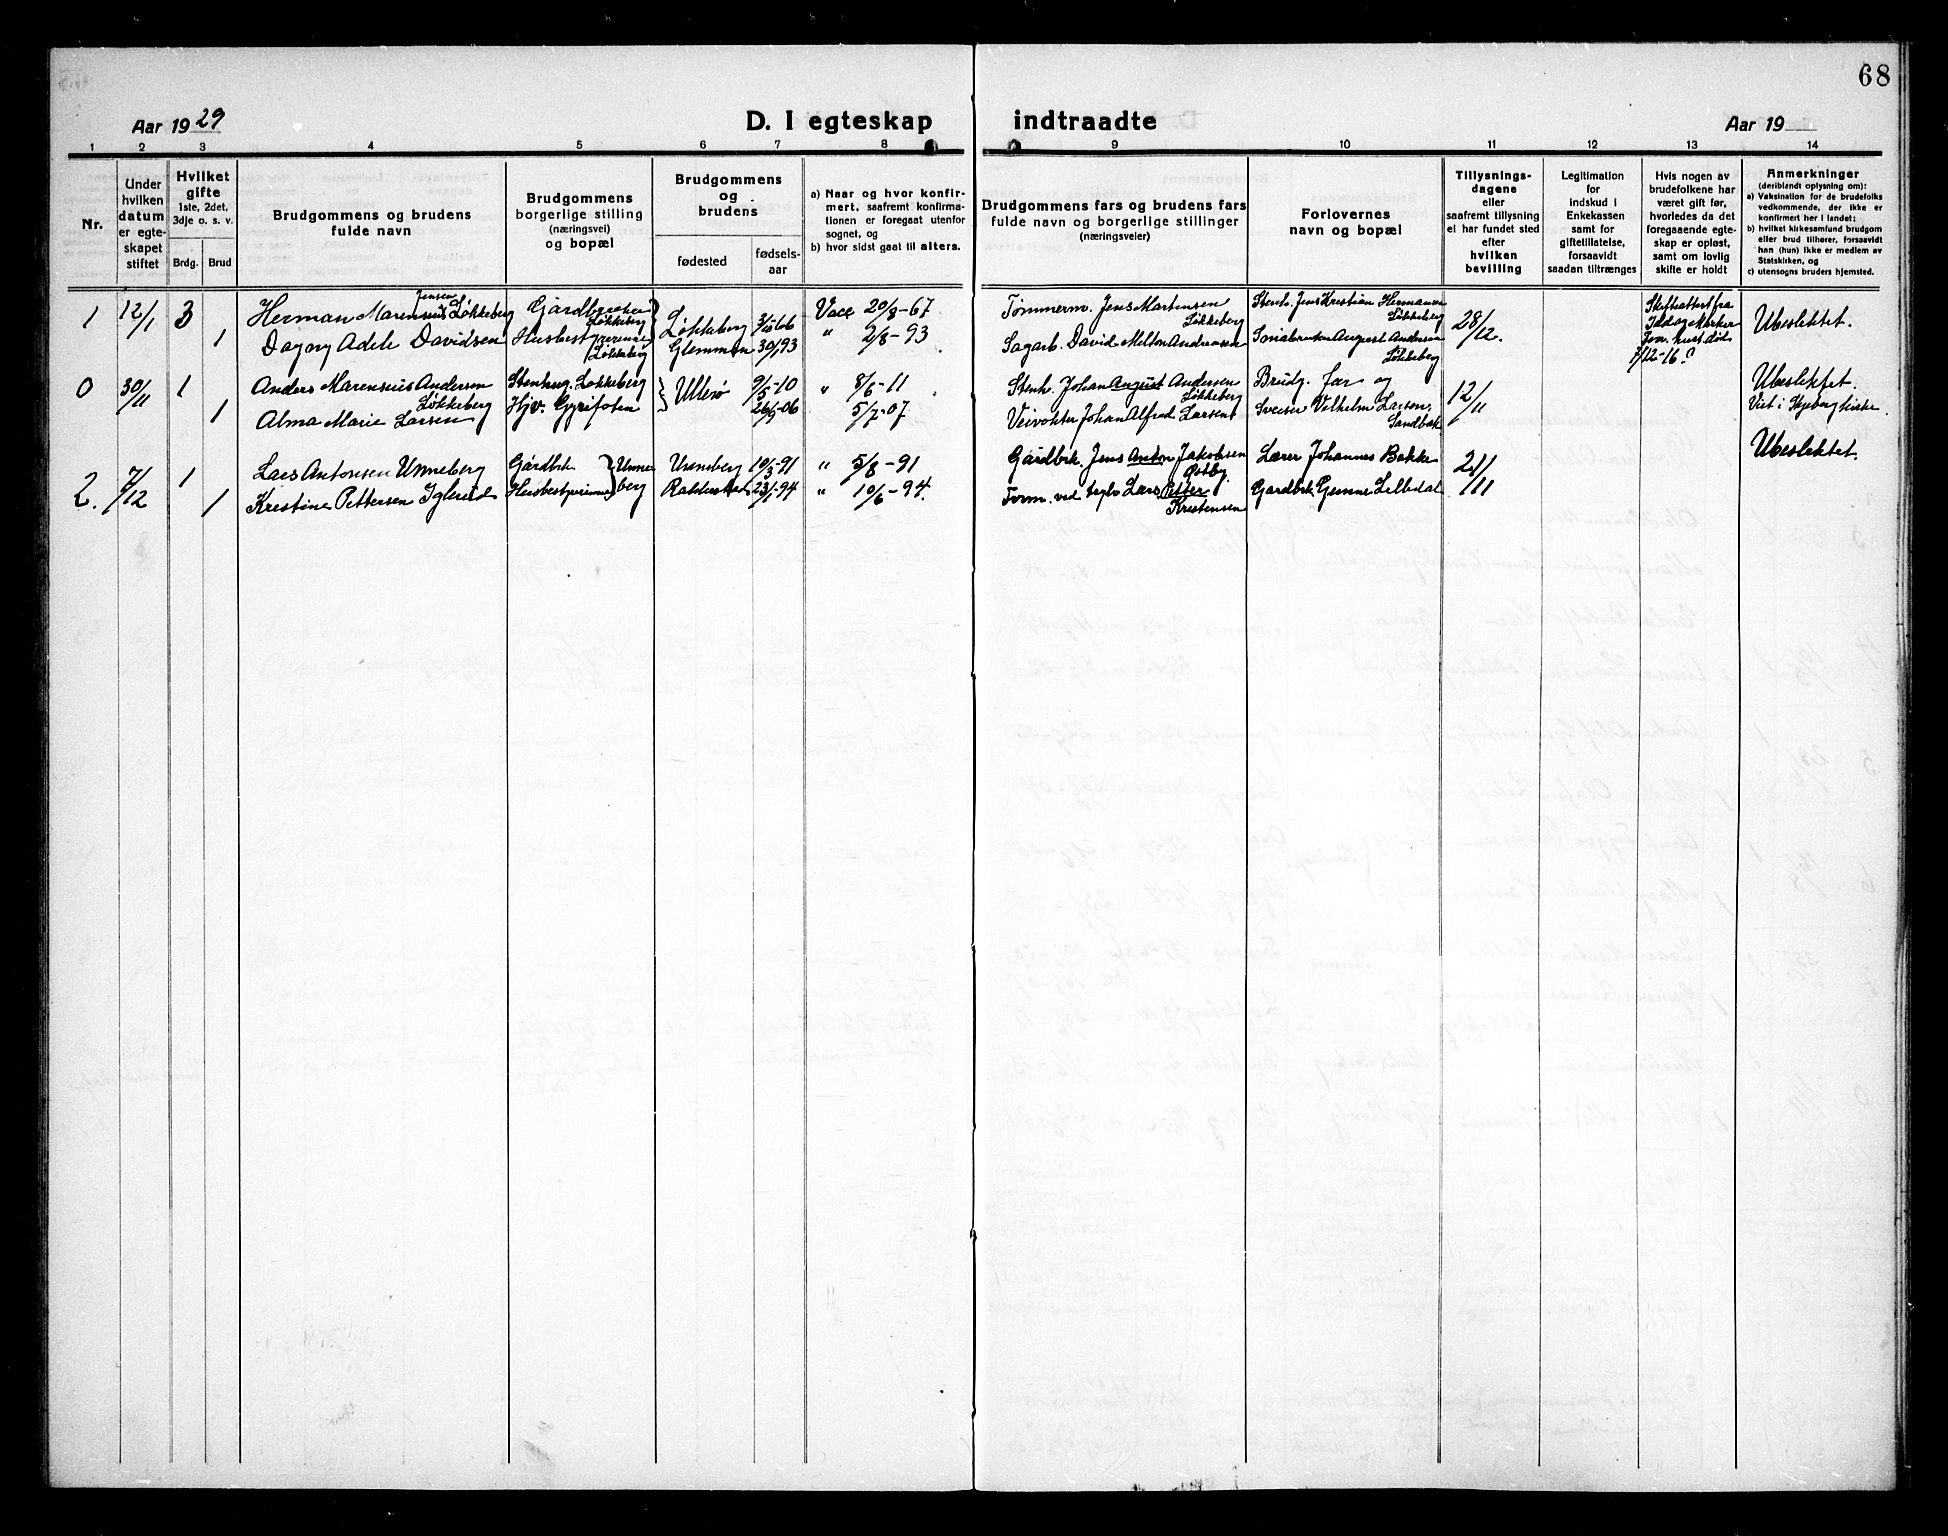 68
Aar 1929
D. I egteskap indtraadte
Aar 19
1 2 3 4 5 6 7 8 9 10 11 12 13 14
Nr.
Under
hvilken
datum
er egte-
skapet
stiftet
Hvilket
gifte
1ste, 2det,
3dje o. s. v.
Brdg. Brud
Brudgommens og brudens
fulde navn
Brudgommens
borgerlige stilling
(næringsvei)
og bopæl
Brudgommens
og
brudens
fødested
fødsels-
aar
a) Naar og hvor konfir-
mert, saafremt konfirma-
tionen er foregaat utenfor
sognet, og
b) hvor sidst gaat til alters.
Brudgommens fars og brudens fars
fulde navn og borgerlige stillinger
(næringsveier)
Forlovernes
navn og bopæl
Tillysnings-
dagene
eller
saafremt tillysning
ei har fundet sted
efter
hvilken
bevilling
Legitimation
for
indskud i
Enkekassen
samt for
giftetillatelse,
forsaavidt
saadan tiltrænges
Hvis nogen av
brudefolkene har
været gift før,
hvorledes da det
foregaaende egte-
skap er opløst,
samt om lovlig
skifte er holdt
Anmerkninger
(deriblandt oplysning om):
a) Vaksination for de brudefolks
vedkommende, der ikke er
konfirmert her i landet;
b) hvilket kirkesamfund brudgom
eller brud tilhører, forsaavidt
han (hun) ikke er medlem av
Statskirken, og
c) utensogns bruders hjemsted.
1 12/1 3 Herman Marensius Jensen Løkkeberg Gårdbruker Løkkeberg Løkkeberg 3/10 66 20/8-67 Tømmerm. Jens Martensen Løkkeberg Stenh. Jens Kristian Hermansen Løkkeberg 28/12. Skifteattest fra Ubeslektet.
1 Dagny Adele Davidsen Husbestyrerinne Løkkeberg Glemmen 30/1 93 " 2/8-93 Sagarb. David Milton Andreassen August Andersen Løkkeberg
7/12-16.
0 30/11 1 Anders Marensius Andersen Løkkeberg Stenhug. Løkkeberg Ullerø 9/5-10 " 8/6-11 Stenh. Johan August Andersen Løkkeberg Brudg. far og 12/11 Ubeslektet.
1 Alma Marie Larsen Hjv. 26/5-06 5/7-07 Veivokter Johan Alfred Larsen Sveiser Vilhelm Larsen, Sandbak Viet i Skjeberg kirke.
2. 7/12 1 Lars Antonsen Unneberg Gårdbrk. Unneberg Unneberg 10/3-91 " 5/8-91 Gårdbrk. Jens Anton Jakobsen Østby. Lærer Johannes Bakke 21/11 Ubeslektet.
1 Kristine Pettersen Iglerød Husbestyrerinne 23/1-94 " 10/6-94. Form. ved Lars Petter Kristensen Gardbrk. Lilledal